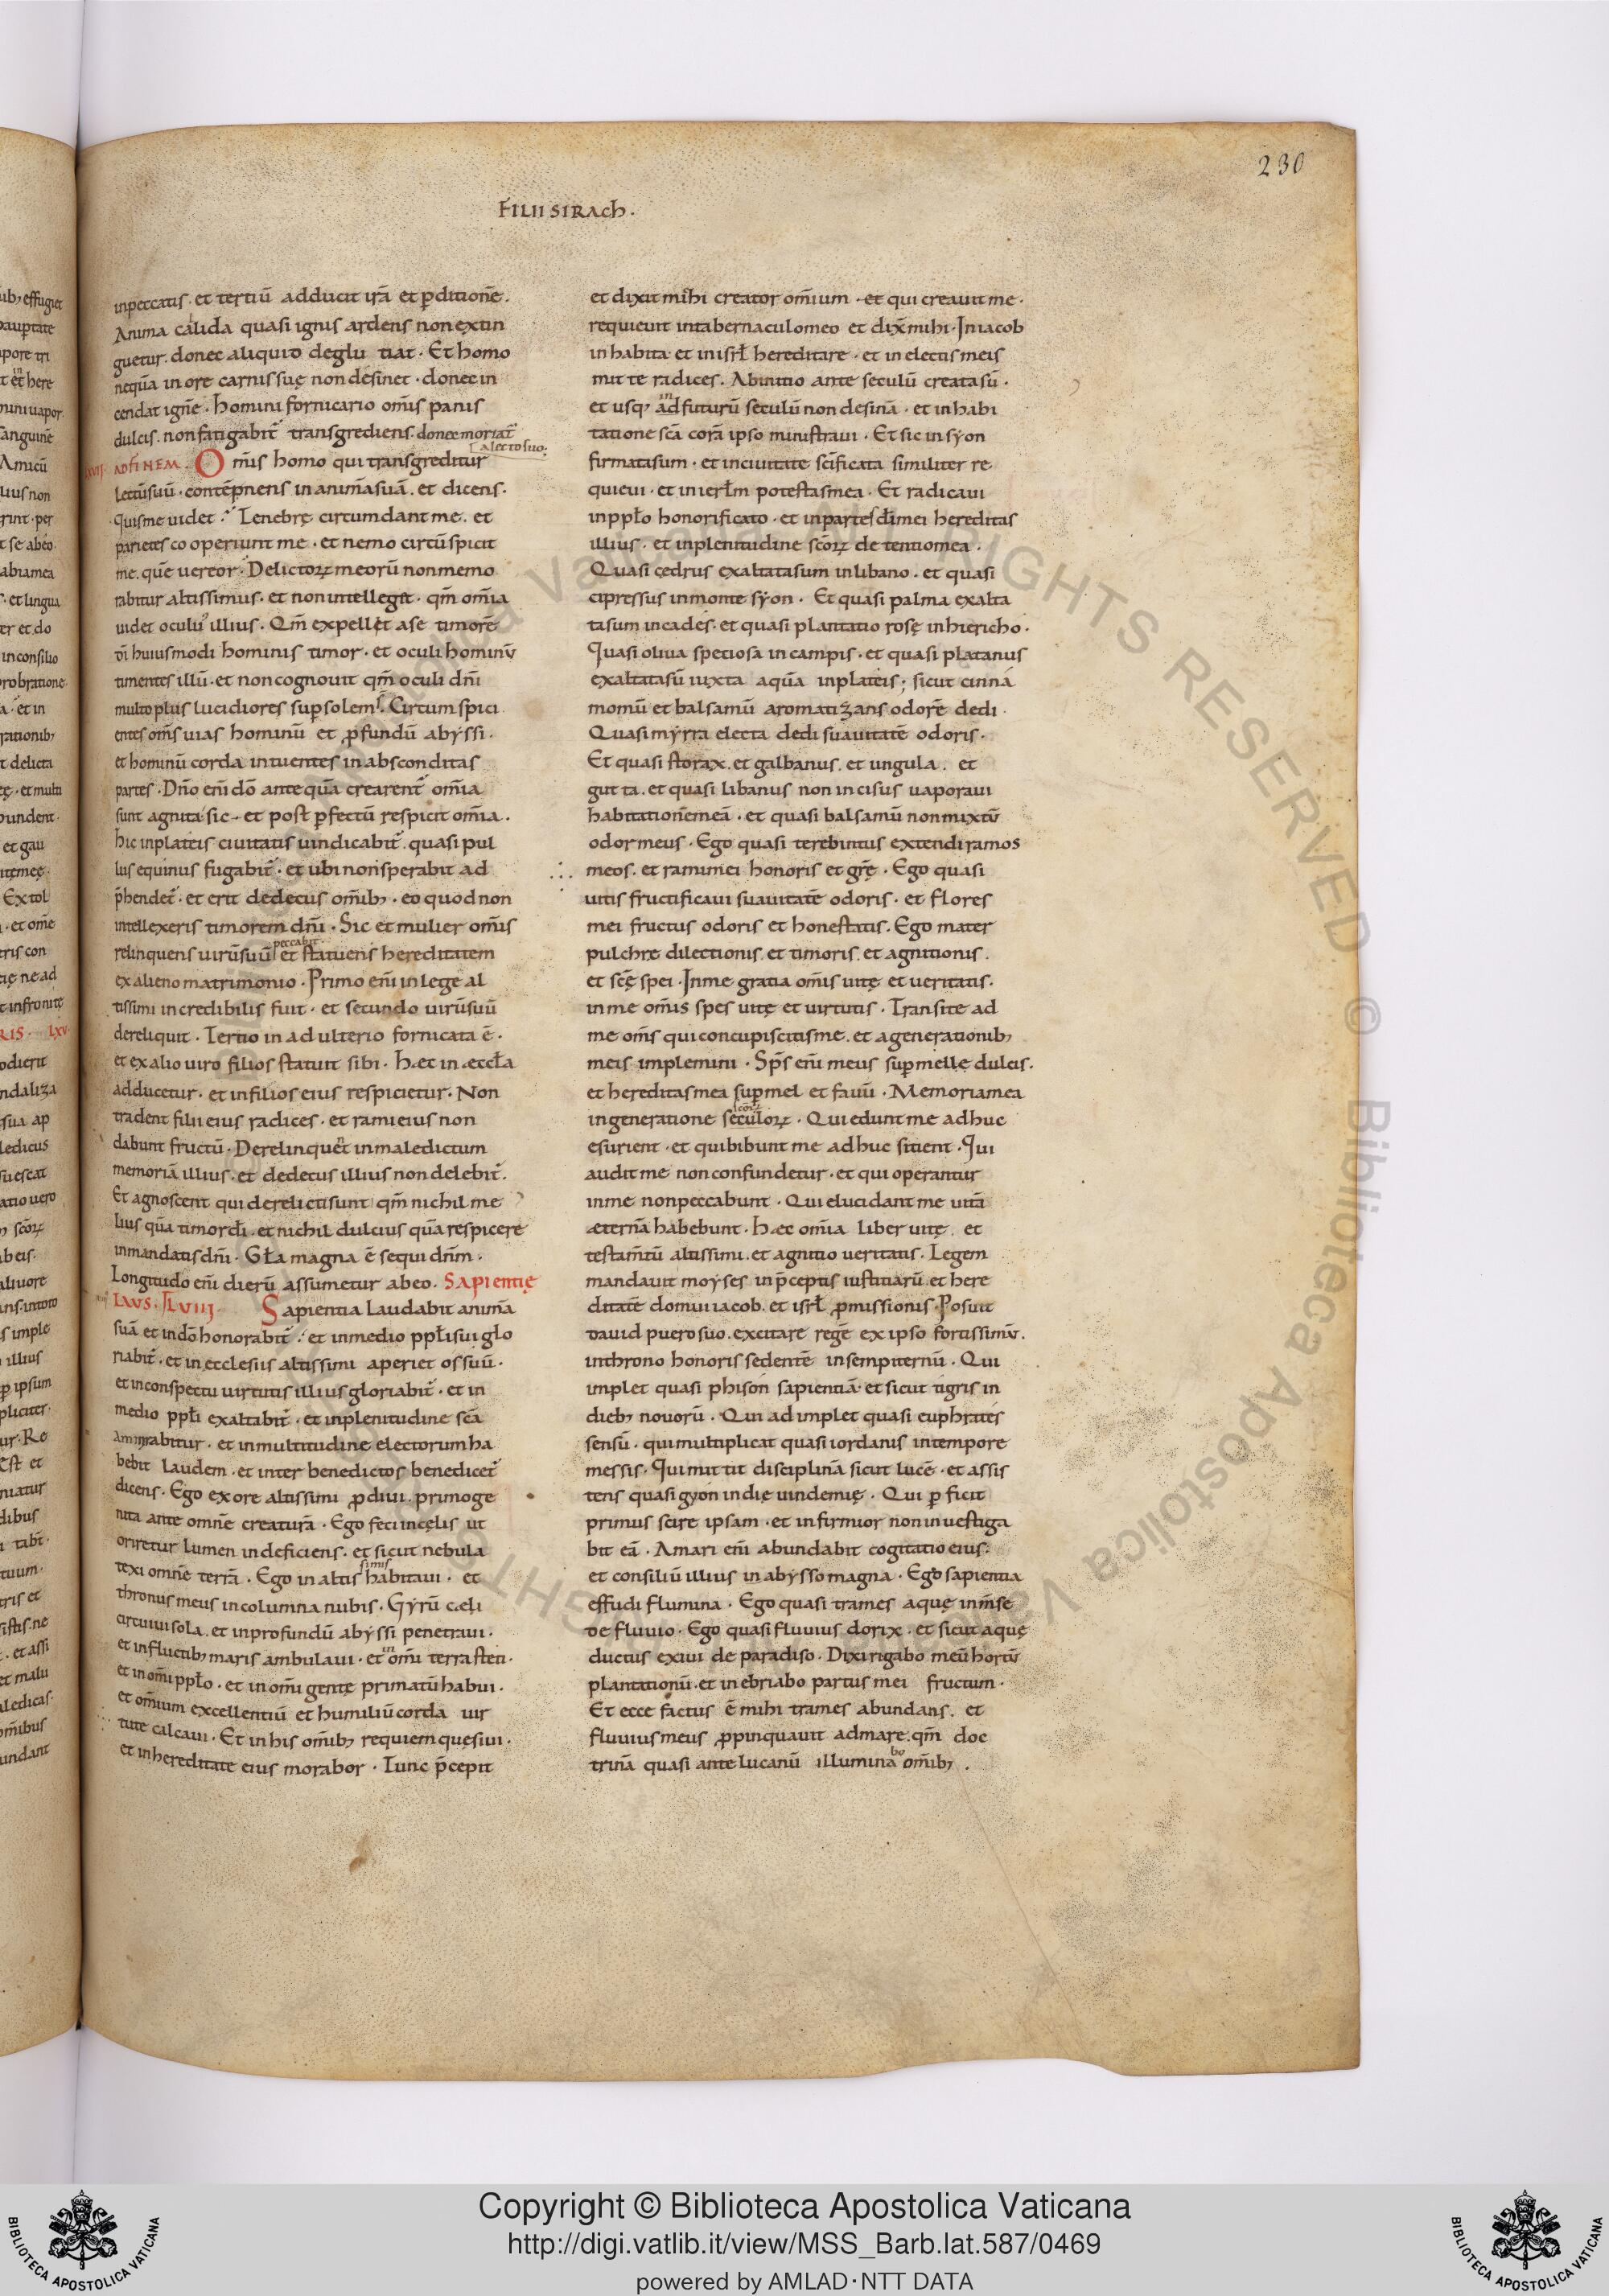 230
FILII SIRACh.
inpeccatis. et tertiū adducit irā et ꝑditionē.
Anima calida quasi ignis ardens non extin
guetur. donec aliquid deglutiat. Et homo
nequā in ore carnis suę non desinet. donec in
cendat ignē. homini fornicario om̄is panis
dulcis. non fatigabit᷑ transgrediens. donec moriat᷑
a lecto suo;
AD FINEM. Om̄is homo qui transgreditur
lectūsuū. contēpnens in animāsuā. et dicens.
quisme uidet. Tenebrę circumdant me. et
parietes cooperiunt me. et nemo circūspicit
me. quē uereor. Delictoꝝ meorū non memo
rabitur altissimus. et non intelleget. qm̄ om̄ia
uidet oculus illius. Qm̄ expellet a se timorē
dī huiusmodi hominis timor. et oculi hominū
timentes illū. et non cognouit qm̄ oculi dn̄i
multo plus lucidiores suꝑ solem. Circumspici
entes om̄s uias hominū et ꝓfundū abyssi.
et hominū corda intuentes in absconditas
partes. Dn̄o eni̅ dō ante quā crearent᷑ om̄ia
sunt agnita. sic et post ꝑfectū respicit om̄ia.
hic inplateis ciuitatis uindicabit᷑. quasi pul
lus equinus fugabit᷑. et ubi non sperabit ad
p̄hendet᷑. et erit dedecus om̄ibꝫ. eo quod non
intellexeris timorem dn̄i. Sic et mulier om̄is
peccabit
relinquens uirūsuū et statuens hereditatem
ex alieno matrimonio. Primo eni̅ in lege al
tissimi incredibilis fuit. et secundo uirūsuū
dereliquit. Tertio in adulterio fornicata ē.
et ex alio uiro filios statuit sibi. Hæc in æccƚa
adducetur. et infilios eius respicietur. Non
tradent filii eius radices. et rami eius non
dabunt fructū. Derelinquet in maledictum
memoriā illius. et dedecus illius non delebit᷑.
Et agnoscent qui derelicti sunt qm̄ nichil me
lius quā timor dī. et nichil dulcius quā respicere
in mandatis dn̄i. Gƚa magna ē sequi dn̄m.
Longitudo eni̅ dierū assumetur ab eo. SApientię
LAVS. Sapientia laudabit animā
suā et in dō honorabit᷑. et inmedio ppƚi sui glo
riabit᷑. et in ecclesiis altissimi aperiet os suū.
et in conspectu uirtutis illius gloriabit᷑. et in
medio ppƚi exaltabit᷑. et inplenitudine sc̄a
Ammirabitur. et in multitudine electorum ha
bebit laudem. et inter benedictos benedicet᷑
dicens. Ego ex ore altissimi ꝓdiui. primoge
nita ante omnē creaturā. Ego feci incęlis ut
oriretur lumen indeficiens. et sicut nebula
simis
texi omnē terrā. Ego in altis habitaui. et
thronus meus in columna nubis. Gyrū cæli
circuiui sola. et inprofundū abyssi penetraui.
in
et in fluctibꝫ maris ambulaui. et om̄i terra steti.
et in om̄i ppƚo. et in om̄i gente primatū habui.
et om̄ium excellentiū et humiliū corda uir
tute calcaui. Et in his om̄ibꝫ requiem quęsiui.
et in hereditate eius morabor. Tunc p̄cepit
et dixit mihi creator om̄ium. et qui creauit me.
requieuit intabernaculo meo et dix̄ mihi. In iacob
inhabita et in isrƚ hereditare. et in electis meis
mitte radices. Ab initio ante seculū creata sū.
in
et usqꝫ ad futurū seculū non desinā. et in habi
tatione sc̄a corā ipso ministraui. Et sic in syon
firmata sum. et in ciuitate sc̄ificata similiter re
quieui. et in ierƚm potestas mea. Et radicaui
in ppƚo honorificato. et in partes dī mei hereditas
illius. et in plenitudine sc̄oꝝ detentio mea.
Quasi cedrus exaltata sum in libano. et quasi
cipressus in monte syon. Et quasi palma exalta
ta sum in cades. et quasi plantatio rosę in hiericho.
Quasi oliua speciosa in campis. et quasi platanus
exaltata sū iuxta aquā in plateis; sicut cinna
momū et balsamū aromatizans odorē dedi.
Quasi myrra electa dedi suauitatē odoris.
Et quasi storax. et galbanus. et ungula. et
gutta. et quasi libanus non incisus uaporaui
habitationē meā. et quasi balsamū non mixtū
odor meus. Ego quasi terebintus extendi ramos
meos. et rami mei honoris et gr̄ę. Ego quasi
uitis fructificaui suauitatē odoris. et flores
mei fructus odoris et honestatis. Ego mater
pulchre dilectionis. et timoris. et agnitionis.
et sc̄ę spei. In me gratia om̄is uitę et ueritatis.
in me om̄is spes uitę et uirtutis. Transite ad
me om̄s qui concupiscitis me. et a generationibꝫ
meis implemini. Sps̄ eni̅ meus suꝑ melle dulcis.
et hereditas mea suꝑ mel et fauū. Memoria mea
in generatione seculoꝝ. Qui edunt me adhuc
esurient. et qui bibunt me adhuc sitient. Qui
audit me non confundetur. et qui operantur
in me non peccabunt. Qui elucidant me uitā
æternā habebunt. Hæc om̄ia liber uitę. et
testam̄tū altissimi. et agnitio ueritatis. Legem
mandauit moyses in p̄ceptis iustitiarū. et here
ditatē domui iacob. et isrƚ ꝓmissionis. Posuit
dauid puero suo. excitare regē ex ipso fortissimū.
in throno honoris sedentē in sempiternū. Qui
implet quasi phison sapientiā. et sicut tigris in
diebꝫ nouorū. Qui adimplet quasi euphrates
sensū. qui multiplicat quasi iordanis in tempore
messis. Qui mittit disciplinā sicut lucē. et assis
tens quasi gyon in die uindemię. Qui ꝑficit
primus scire ipsam. et infirmior non inuestiga
bit eā. A mari eni̅ abundabit cogitatio eius.
et consiliū illius in abysso magna. Ego sapientia
effudi flumina. Ego quasi trames aquę inm̄se
de fluuio. Ego quasi fluuius dorix. et sicut aquę
ductus exiui de paradiso. Dixi rigabo meū hortū
plantationū. et inebriabo partus mei fructum.
Et ecce factus ē mihi trames abundans. et
fluuius meus ꝓpinquauit ad mare. qm̄ doc
bo
trinā quasi ante lucanū illumina om̄ibꝫ.
Copyright © Biblioteca Apostolica Vaticana
http://digi.vatlib.it/view/MSS_Barb.lat.587/0469
powered by AMLAD·NTT DATA